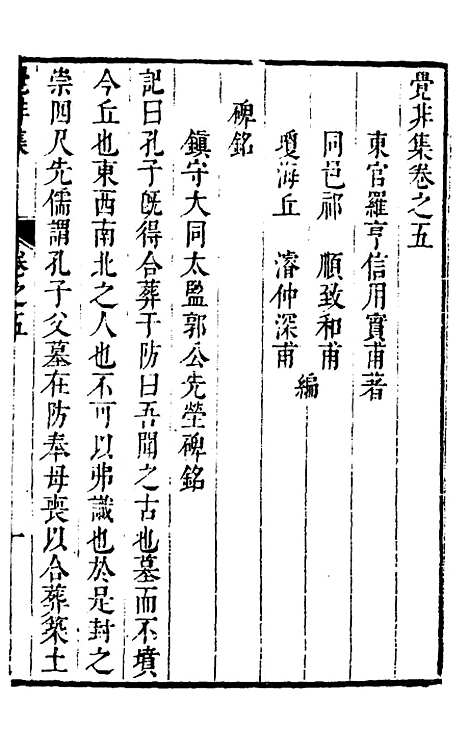 覺非集卷之五
東官羅亨信用實甫著
同邑祁　順致和甫
瓊海丘　濬仲深甫
編
碑銘
鎮守大同太監郭公先塋碑銘
記曰孔子旣得合葬于防曰吾聞之古也墓而不墳
今丘也東西南北之人也不可以弗識也於是封之
崇四尺先儒謂孔子父墓在防奉母喪以合葬築土
覺非集
卷之五
一